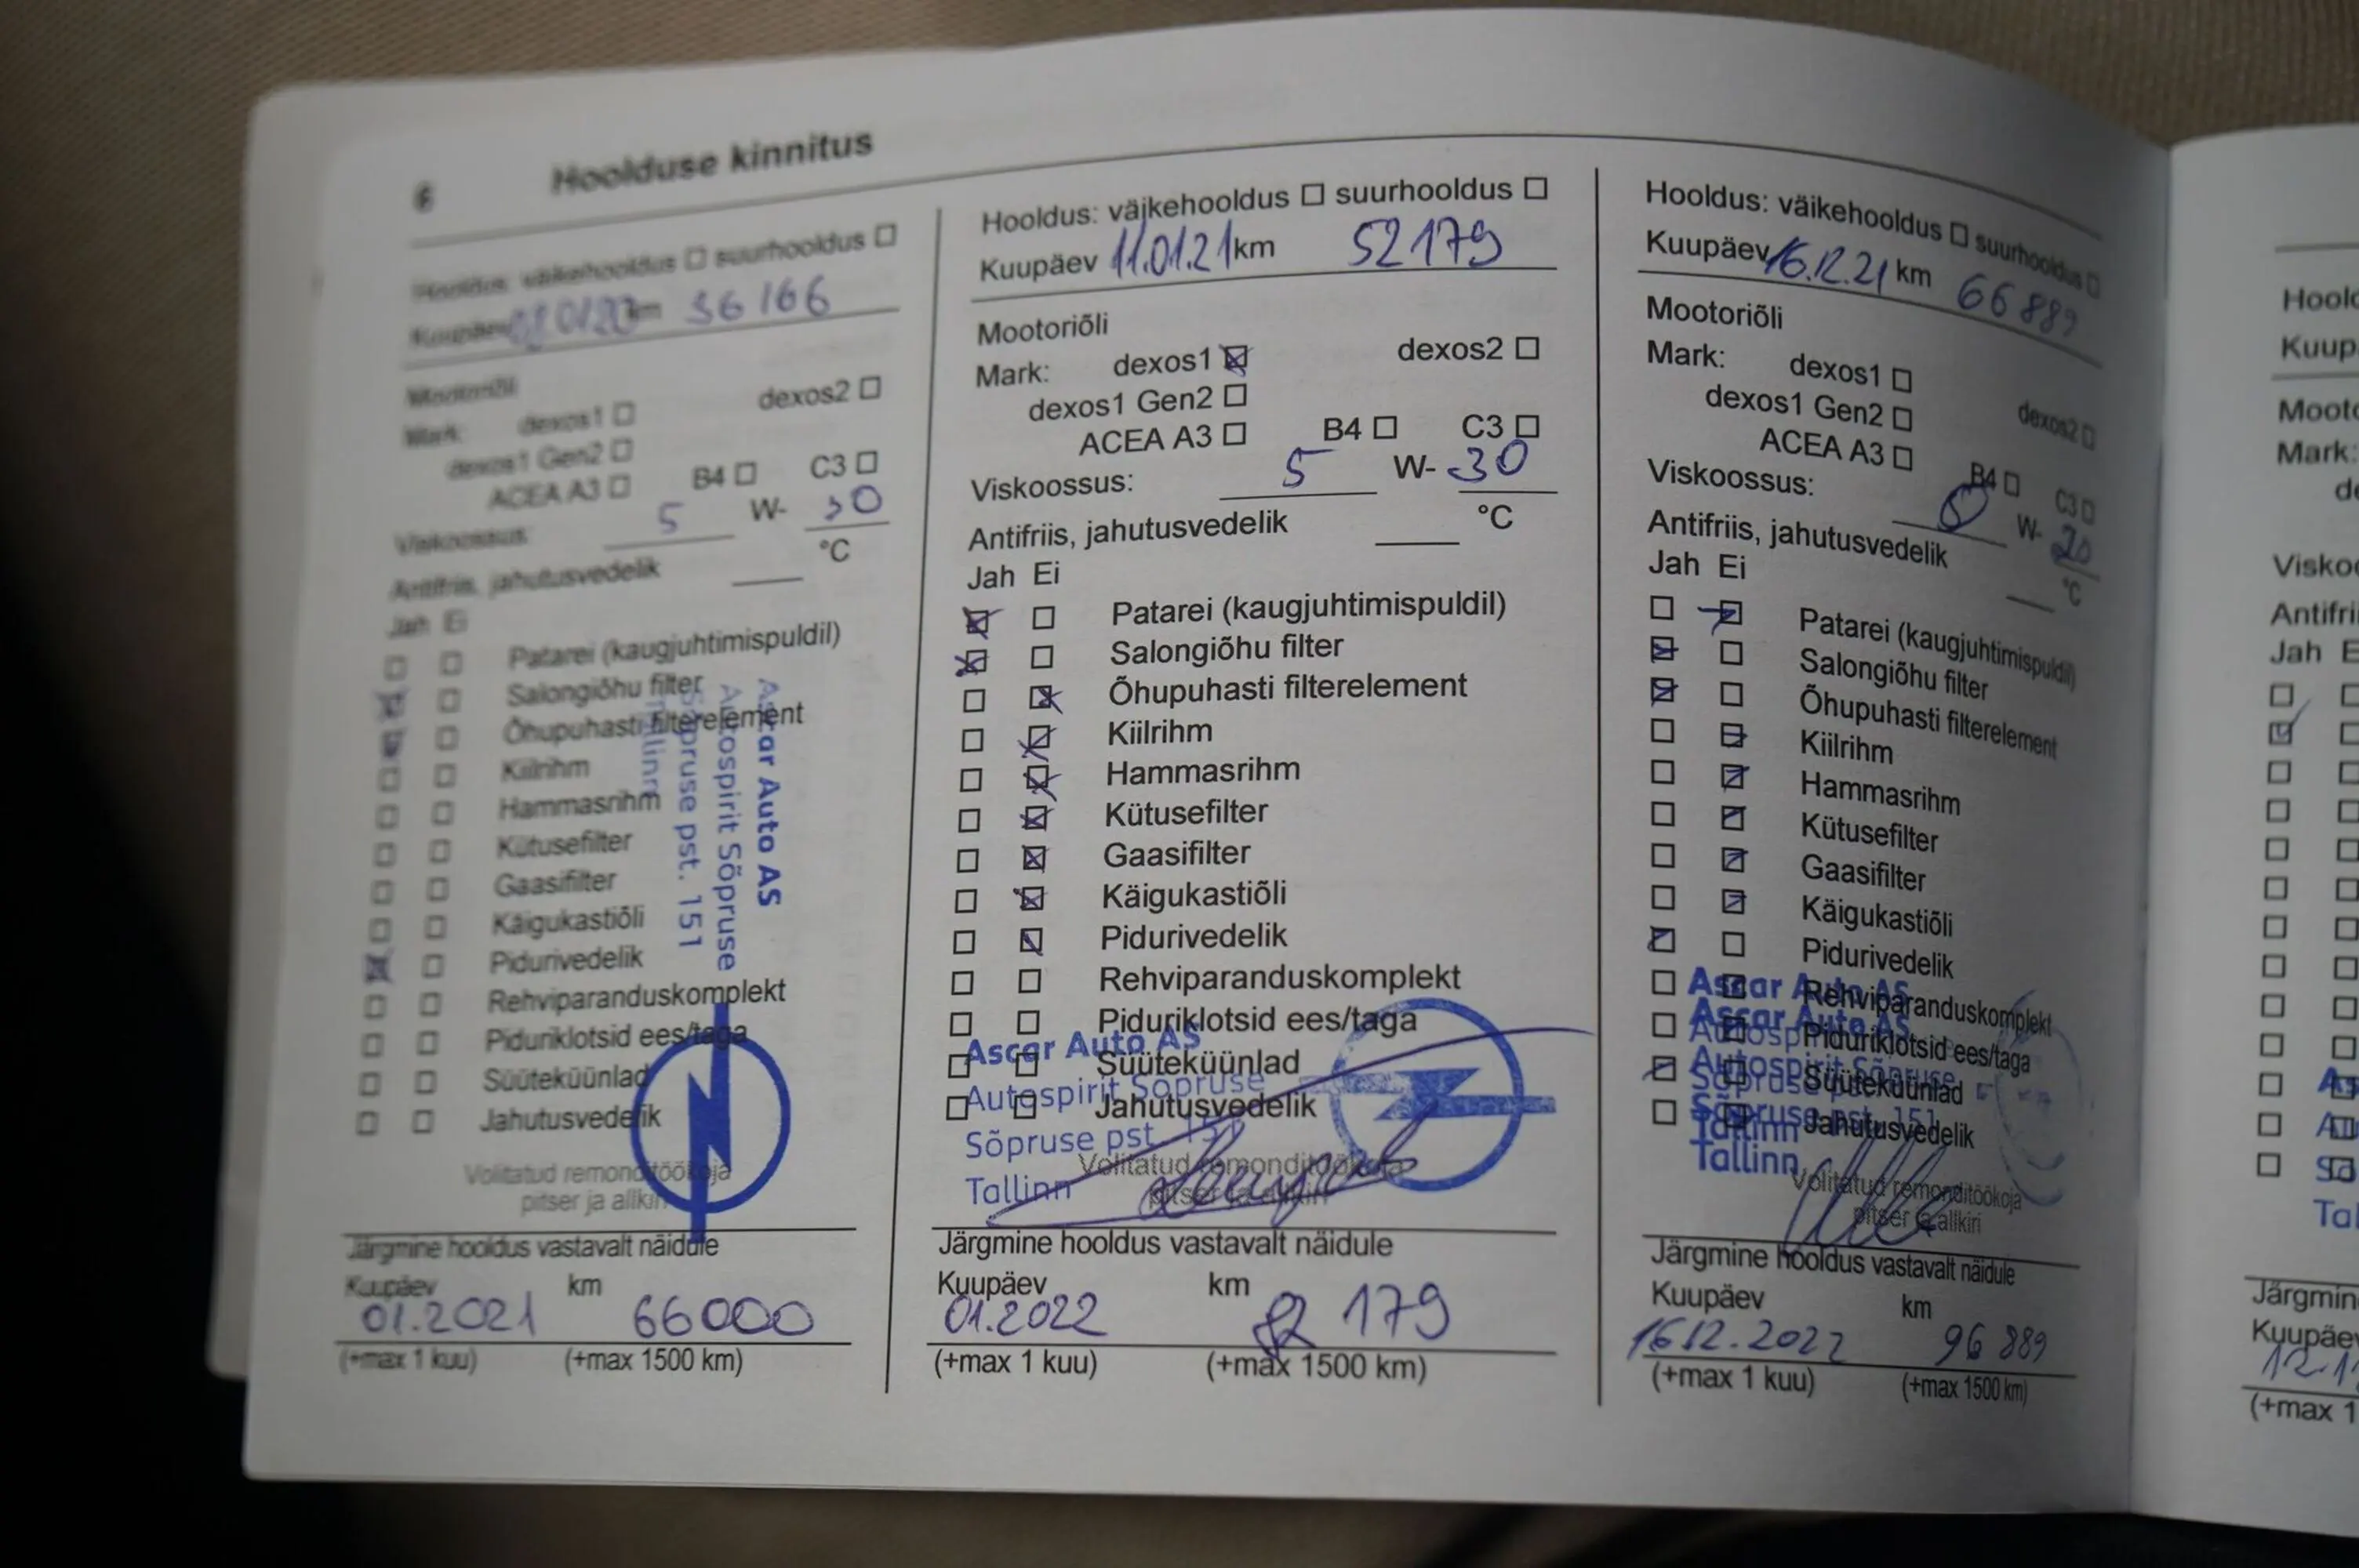 6 Hoolduse kinnitus
Hooldus: väikehooldus ☐ suurhooldus ☐
Kuupäev km 36166
Mootoriõli
Mark: dexos1 ☐ dexos2 ☐
dexos1 Gen2 ☐
ACEA A3 ☐ B4 ☐ C3 ☐
Viskoossus: 5 W- 30
Antifriis, jahutusvedelik °C
Jah Ei
☐ ☐ Patarei (kaugjuhtimispuldil)
☒ ☐ Salongiõhu filter
☒ ☐ Õhupuhasti filterelement
☐ ☐ Kiilrihm
☐ ☐ Hammasrihm
☐ ☐ Kütusefilter
☐ ☐ Gaasifilter
☐ ☐ Käigukastiõli
☒ ☐ Pidurivedelik
☐ ☐ Rehviparanduskomplekt
☐ ☐ Piduriklotsid ees/taga
☐ ☐ Süüteküünlad
☐ ☐ Jahutusvedelik
Ascar Auto AS
Autospirit Sõpruse
Sõpruse pst. 151
Tallinn
Volitatud remonditöökoja
pitser ja allkiri
Järgmine hooldus vastavalt näidule
Kuupäev km
01.2021 66000
(+max 1 kuu) (+max 1500 km)
Hooldus: väikehooldus ☐ suurhooldus ☐
Kuupäev 11.01.21 km 52179
Mootoriõli
Mark: dexos1 ☒ dexos2 ☐
dexos1 Gen2 ☐
ACEA A3 ☐ B4 ☐ C3 ☐
Viskoossus: 5 W- 30
Antifriis, jahutusvedelik °C
Jah Ei
☒ ☐ Patarei (kaugjuhtimispuldil)
☒ ☐ Salongiõhu filter
☐ ☒ Õhupuhasti filterelement
☐ ☒ Kiilrihm
☐ ☒ Hammasrihm
☐ ☒ Kütusefilter
☐ ☒ Gaasifilter
☐ ☒ Käigukastiõli
☐ ☒ Pidurivedelik
☐ ☐ Rehviparanduskomplekt
☐ ☐ Piduriklotsid ees/taga
☐ ☐ Süüteküünlad
☐ ☐ Jahutusvedelik
Ascar Auto AS
Autospirit Sõpruse
Sõpruse pst. 151
Tallinn
Volitatud remonditöökoja
pitser ja allkiri
Järgmine hooldus vastavalt näidule
Kuupäev km
01.2022 82 179
(+max 1 kuu) (+max 1500 km)
Hooldus: väikehooldus ☐ suurhooldus ☐
Kuupäev 16.12.21 km 66889
Mootoriõli
Mark: dexos1 ☐ dexos2 ☐
dexos1 Gen2 ☐
ACEA A3 ☐ B4 ☐ C3 ☐
Viskoossus: 0 W- 20
Antifriis, jahutusvedelik °C
Jah Ei
☐ ☒ Patarei (kaugjuhtimispuldil)
☒ ☐ Salongiõhu filter
☒ ☐ Õhupuhasti filterelement
☐ ☒ Kiilrihm
☐ ☒ Hammasrihm
☐ ☒ Kütusefilter
☐ ☒ Gaasifilter
☐ ☒ Käigukastiõli
☒ ☐ Pidurivedelik
☐ ☒ Rehviparanduskomplekt
☐ ☒ Piduriklotsid ees/taga
☒ ☐ Süüteküünlad
☐ ☒ Jahutusvedelik
Ascar Auto AS
Ascar Auto AS
Autospirit Sõpruse
Sõpruse pst. 151
Tallinn
Tallinn
Volitatud remonditöökoja
pitser ja allkiri
Järgmine hooldus vastavalt näidule
Kuupäev km
16.12.2022 96 889
(+max 1 kuu) (+max 1500 km)
Mark:
Jah
(+max 1